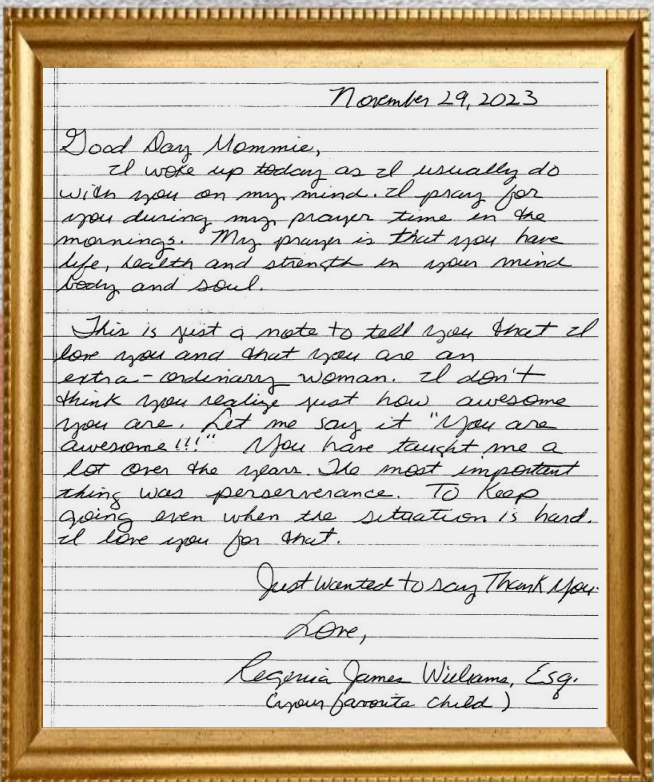 November 29, 2023
Good Day Mommie,
I woke up today as I usually do
with you on my mind. I pray for
you during my prayer time in the
mornings. My prayer is that you have
life, health and strength in your mind
body and soul.
This is just a note to tell you that I
love you and that you are an
extra-ordinary woman. I don't
think you realize just how awesome
you are. Let me say it "You are
awesome!!!" You have taught me a
lot over the years. The most important
thing was perserverance. To Keep
going even when the situation is hard.
I love you for that.
Just wanted to say Thank You
Love,
Regenia James Williams, Esq.
(your favorite child)